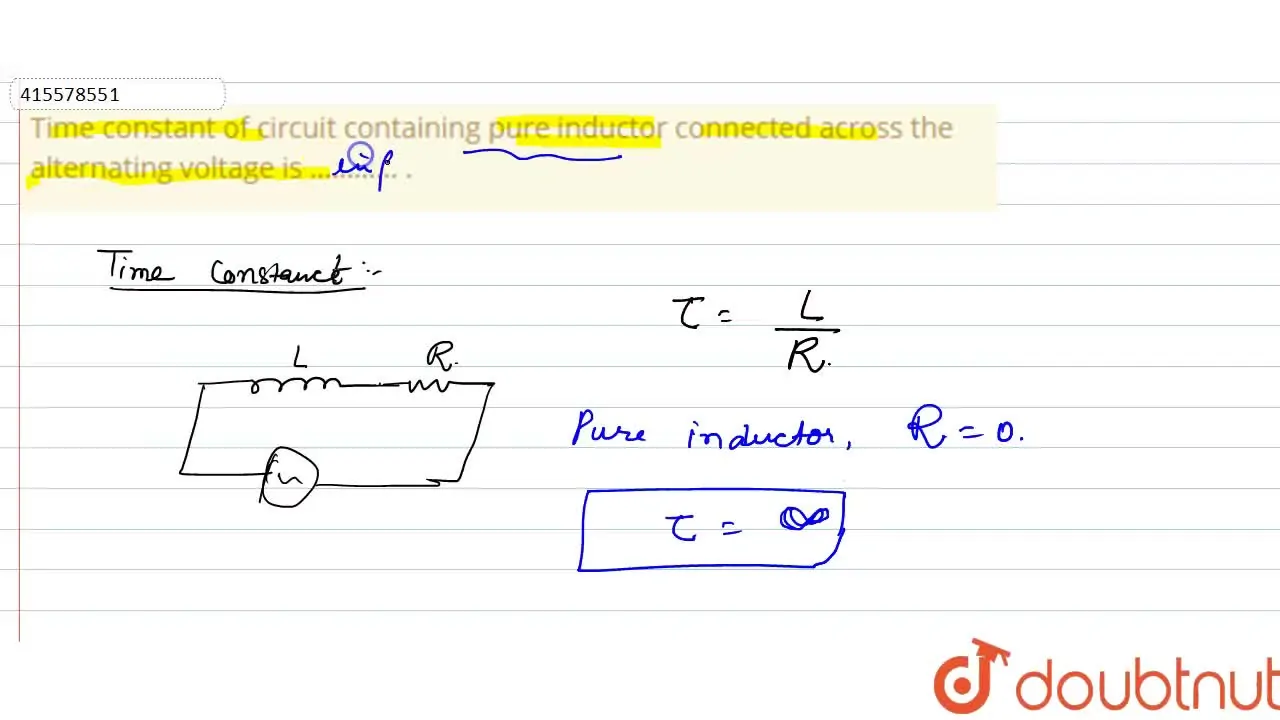 415578551
Time constant of circuit containing pure inductor connected across the
alternating voltage is ............. .
Time constant :-
L
R.
τ = L
R.
Pure inductor, R = 0.
τ = ∞
doubtnut